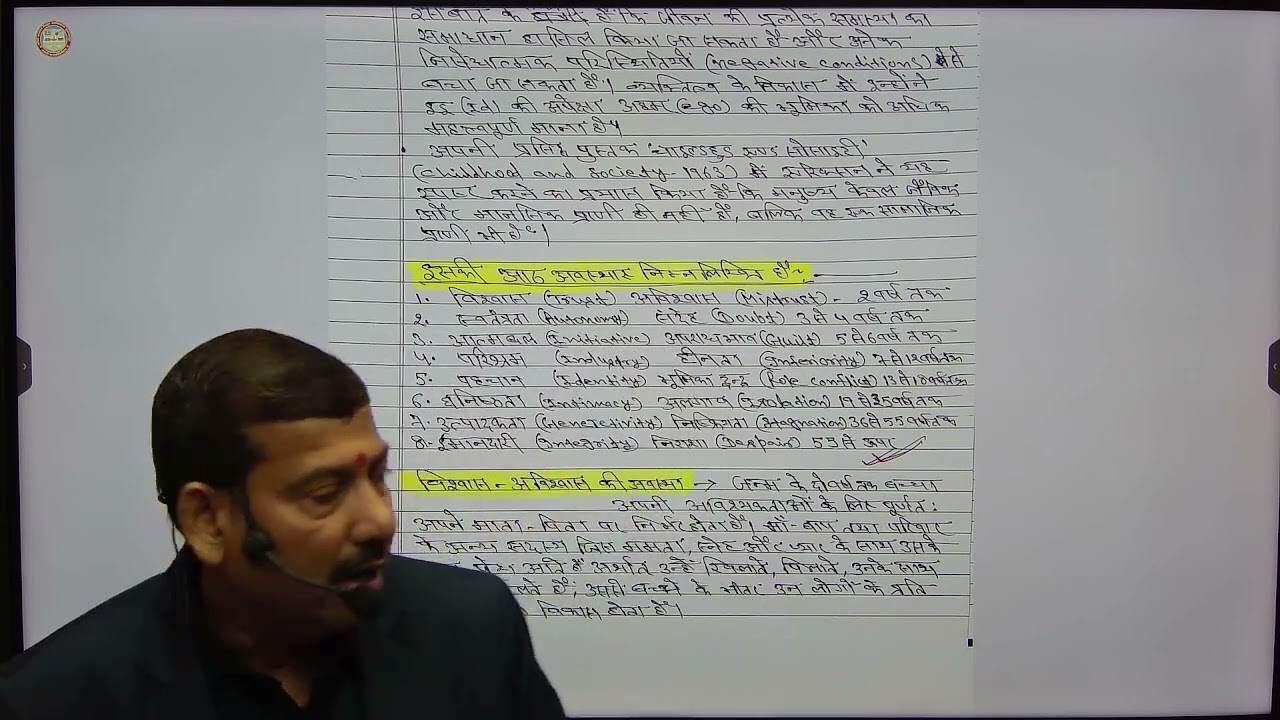 इसबात के समर्थक हैं कि जीवन की प्रत्येक समस्या का
समाधान हासिल किया जा सकता है और अनेक
निषेधात्मक परिस्थितियों (negative conditions) से
बचा जा सकता है। व्यक्तित्व के विकास में उन्होंने
इड (Id) की अपेक्षा अहम (ego) की भूमिका को अधिक
महत्त्वपूर्ण माना है।
अपनी प्रसिद्ध पुस्तक 'चाइल्डहुड एण्ड सोसाइटी'
(Childhood and Society-1963) में इरिक्सन ने यह
स्पष्ट करने का प्रयास किया है कि मनुष्य केवल जैविक
और मानसिक प्राणी ही नहीं है, बल्कि वह एक सामाजिक
प्राणी भी है।
इसकी आठ अवस्थाएं निम्नलिखित हैं-
1. विश्वास (Trust) अविश्वास (Mistrust) - 2 वर्ष तक
2. स्वतंत्रता (Autonomy) संदेह (Doubt) 3 से 4 वर्ष तक
3. आत्मबल (Initiative) अपराधभाव (Guilt) 5 से 6 वर्ष तक
4. परिश्रम (Industry) हीनता (Inferiority) 7 से 12 वर्ष तक
5. पहचान (Identity) भूमिका द्वन्द्व (Role conflict) 13 से 18 वर्ष तक
6. घनिष्ठता (Intimacy) अलगाव (Isolation) 19 से 35 वर्ष तक
7. उत्पादकता (Generativity) निष्क्रियता (Stagnation) 36 से 55 वर्ष तक
8. ईमानदारी (Integrity) निराशा (Despair) 55 से ऊपर
विश्वास - अविश्वास की अवस्था → जन्म के दो वर्ष तक बच्चा
अपनी आवश्यकताओं के लिए पूर्णतः
अपने माता-पिता पर निर्भर होता है। माँ-बाप तथा परिवार
के अन्य सदस्य जिस ममता, स्नेह और प्यार के साथ उसके
पेश आते हैं अर्थात उन्हें खिलाते, पिलाते, उनके साथ
हैं, उससे बच्चे के भीतर उन लोगों के प्रति
विकास होता है।